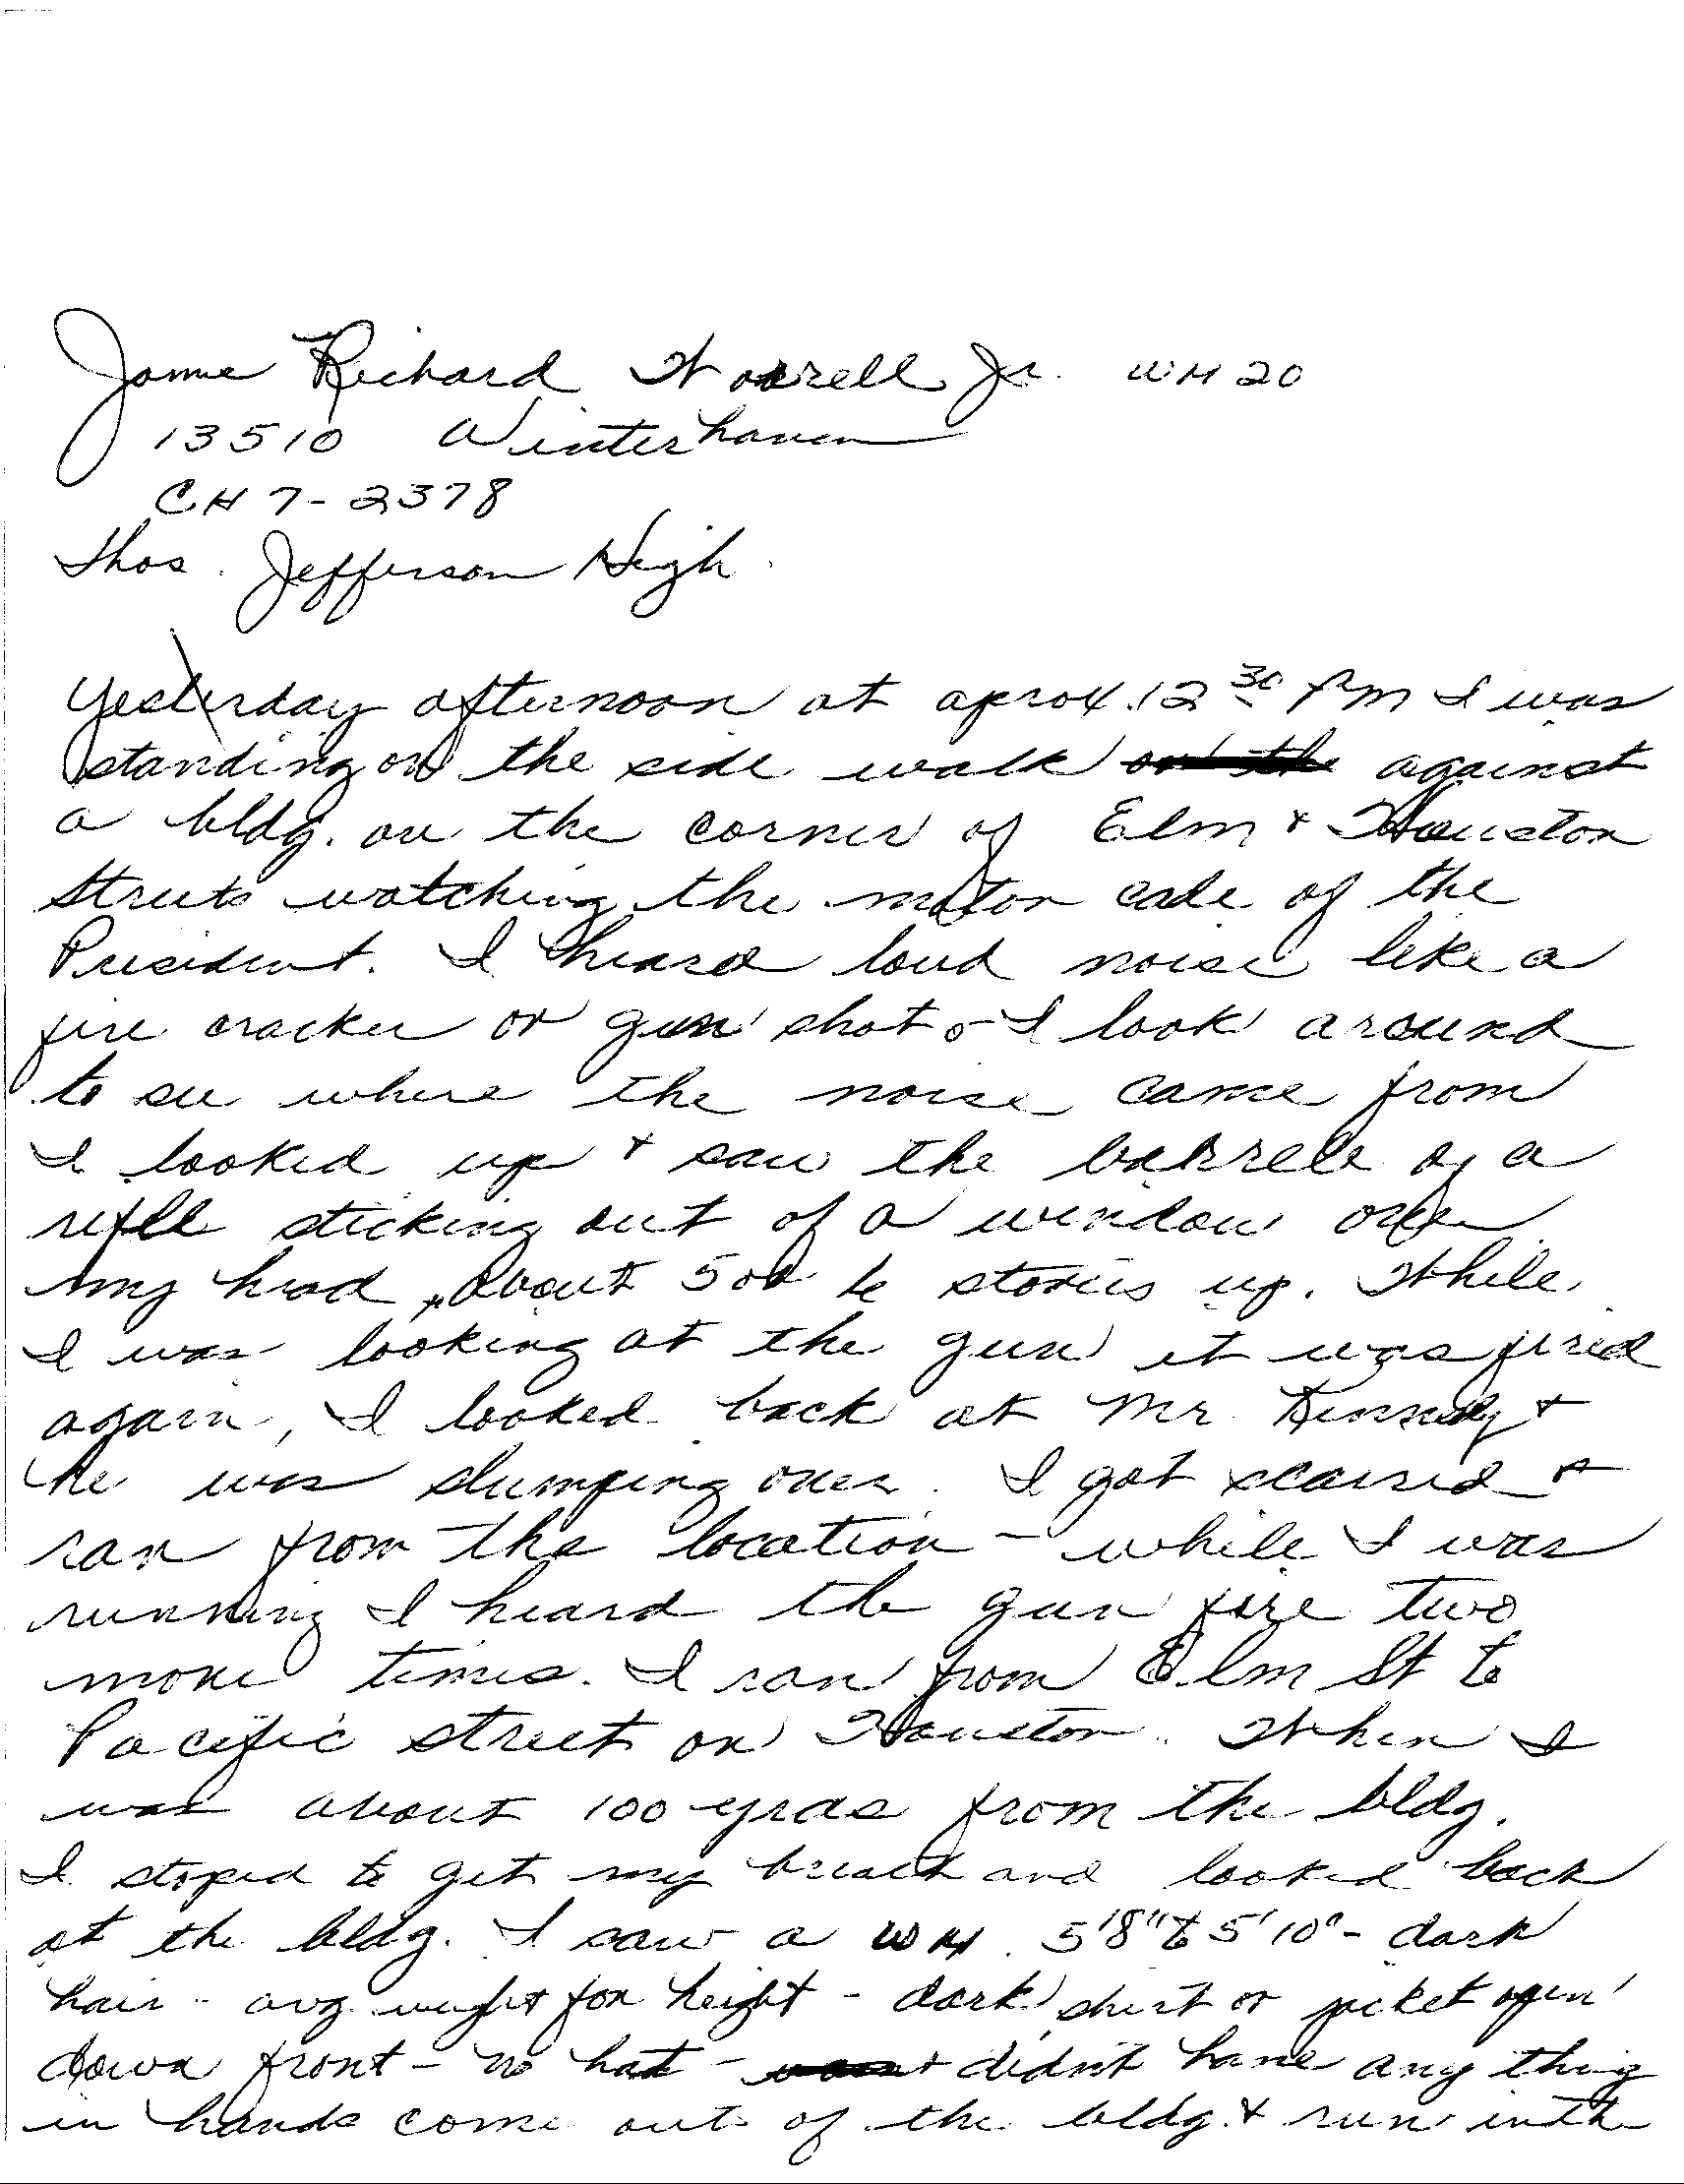 Jame Richard Worrell Jr. WM 20
13510 Winterhaven
CH 7-2378
Thos. Jefferson High.
Yesterday afternoon at aprox. 12 30 PM I was
standing on the side walk on the against
a bldg. on the corner of Elm & Houston
Streets watching the motor cade of the
President. I heard loud noise like a
fire cracker or gun shot - I look around
to see where the noise came from
I looked up & saw the barrell of a
rifle sticking out of a window over
my head about 5 or 6 stories up. While
I was looking at the gun it was fired
again, I looked back at Mr. Kennedy &
he was slumping over. I got scaired &
ran from the location - while I was
running I heard the gun fire two
more times. I ran from Elm St to
Pacific street on Houston. When I
was about 100 yrds from the bldg.
I stoped to get my breath and looked back
at the bldg. I saw a WM. 5'8" to 5'10" - dark
hair - avg. weight for height - dark shirt or jacket open
down front - no hat - didn't have any thing
in hands come out of the bldg. & run in the